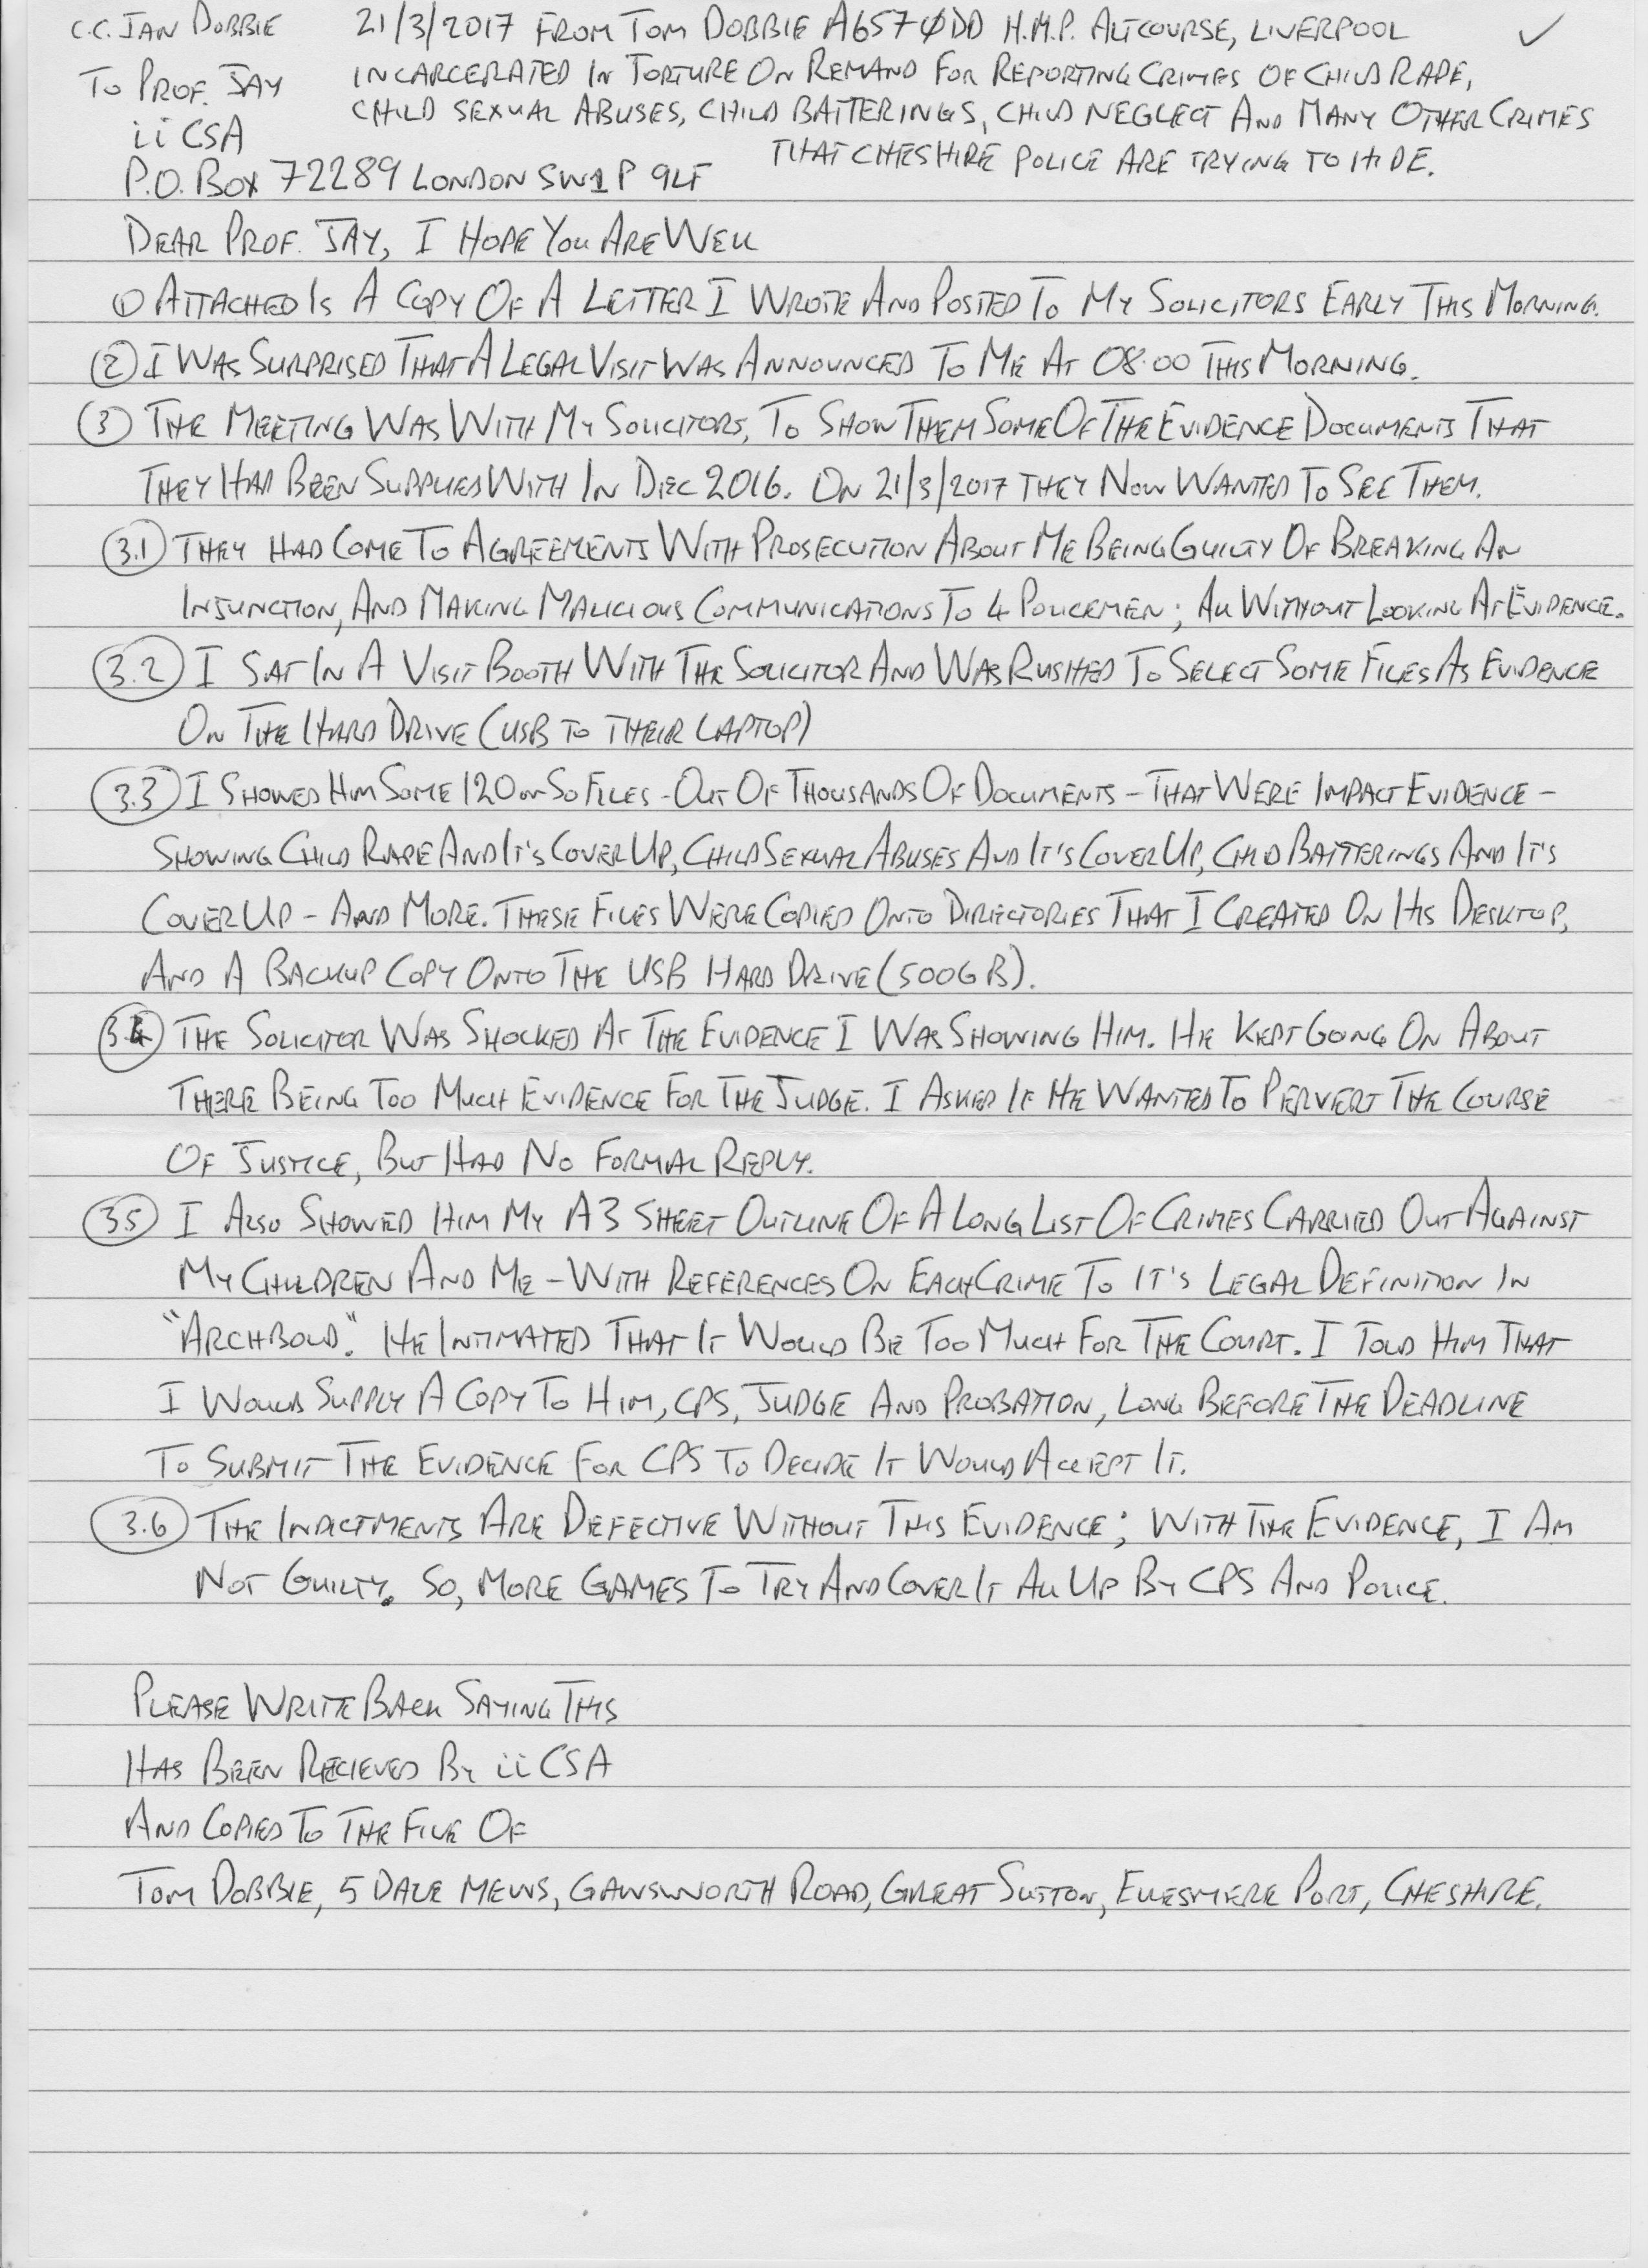 C.C. JAN DOBBIE 21/3/2017 FROM TOM DOBBIE A6570DD H.M.P. ALTCOURSE, LIVERPOOL ✓
TO PROF. JAY INCARCERATED IN TORTURE ON REMAND FOR REPORTING CRIMES OF CHILD RAPE,
CHILD SEXUAL ABUSES, CHILD BATTERINGS, CHILD NEGLECT AND MANY OTHER CRIMES
iiCSA THAT CHESHIRE POLICE ARE TRYING TO HIDE.
P.O. BOX 72289 LONDON SW1P 9LF
DEAR PROF. JAY, I HOPE YOU ARE WELL
① ATTACHED IS A COPY OF A LETTER I WROTE AND POSTED TO MY SOLICITORS EARLY THIS MORNING.
② I WAS SURPRISED THAT A LEGAL VISIT WAS ANNOUNCED TO ME AT 08.00 THIS MORNING.
③ THE MEETING WAS WITH MY SOLICITORS, TO SHOW THEM SOME OF THE EVIDENCE DOCUMENTS THAT
THEY HAD BEEN SUPPLIED WITH IN DEC 2016. ON 21/3/2017 THEY NOW WANTED TO SEE THEM.
3.1 THEY HAD COME TO AGREEMENTS WITH PROSECUTION ABOUT ME BEING GUILTY OF BREAKING AN
INJUNCTION, AND MAKING MALICIOUS COMMUNICATIONS TO 4 POLICEMEN; ALL WITHOUT LOOKING AT EVIDENCE.
3.2 I SAT IN A VISIT BOOTH WITH THE SOLICITOR AND WAS RUSHED TO SELECT SOME FILES AS EVIDENCE
ON THE HARD DRIVE (USB TO THEIR LAPTOP)
3.3 I SHOWED HIM SOME 120 OR SO FILES - OUT OF THOUSANDS OF DOCUMENTS - THAT WERE IMPACT EVIDENCE -
SHOWING CHILD RAPE AND IT'S COVER UP, CHILD SEXUAL ABUSES AND IT'S COVER UP, CHILD BATTERINGS AND IT'S
COVER UP - AND MORE. THESE FILES WERE COPIED ONTO DIRECTORIES THAT I CREATED ON HIS DESKTOP,
AND A BACKUP COPY ONTO THE USB HARD DRIVE (500GB).
3.4 THE SOLICITOR WAS SHOCKED AT THE EVIDENCE I WAS SHOWING HIM. HE KEPT GOING ON ABOUT
THERE BEING TOO MUCH EVIDENCE FOR THE JUDGE. I ASKED IF HE WANTED TO PERVERT THE COURSE
OF JUSTICE, BUT HAD NO FORMAL REPLY.
3.5 I ALSO SHOWED HIM MY A3 SHEET OUTLINE OF A LONG LIST OF CRIMES CARRIED OUT AGAINST
MY CHILDREN AND ME - WITH REFERENCES ON EACH CRIME TO IT'S LEGAL DEFINITION IN
"ARCHBOLD". HE INTIMATED THAT IT WOULD BE TOO MUCH FOR THE COURT. I TOLD HIM THAT
I WOULD SUPPLY A COPY TO HIM, CPS, JUDGE AND PROBATION, LONG BEFORE THE DEADLINE
TO SUBMIT THE EVIDENCE FOR CPS TO DECIDE IT WOULD ACCEPT IT.
3.6 THE INDICTMENTS ARE DEFECTIVE WITHOUT THIS EVIDENCE; WITH THE EVIDENCE, I AM
NOT GUILTY. SO, MORE GAMES TO TRY AND COVER IT ALL UP BY CPS AND POLICE.
PLEASE WRITE BACK SAYING THIS
HAS BEEN RECIEVED BY iiCSA
AND COPIED TO THE FILE OF
TOM DOBBIE, 5 DALE MEWS, GAWSWORTH ROAD, GREAT SUTTON, ELLESMERE PORT, CHESHIRE.